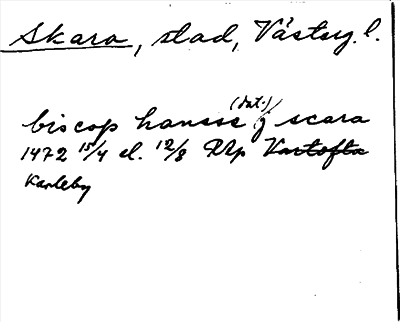 Skara, stad, Västerg. l.
(dat.)
biscop hansse j scara
1472 15/4 el. 12/8 RAp Vartofta
Karleby